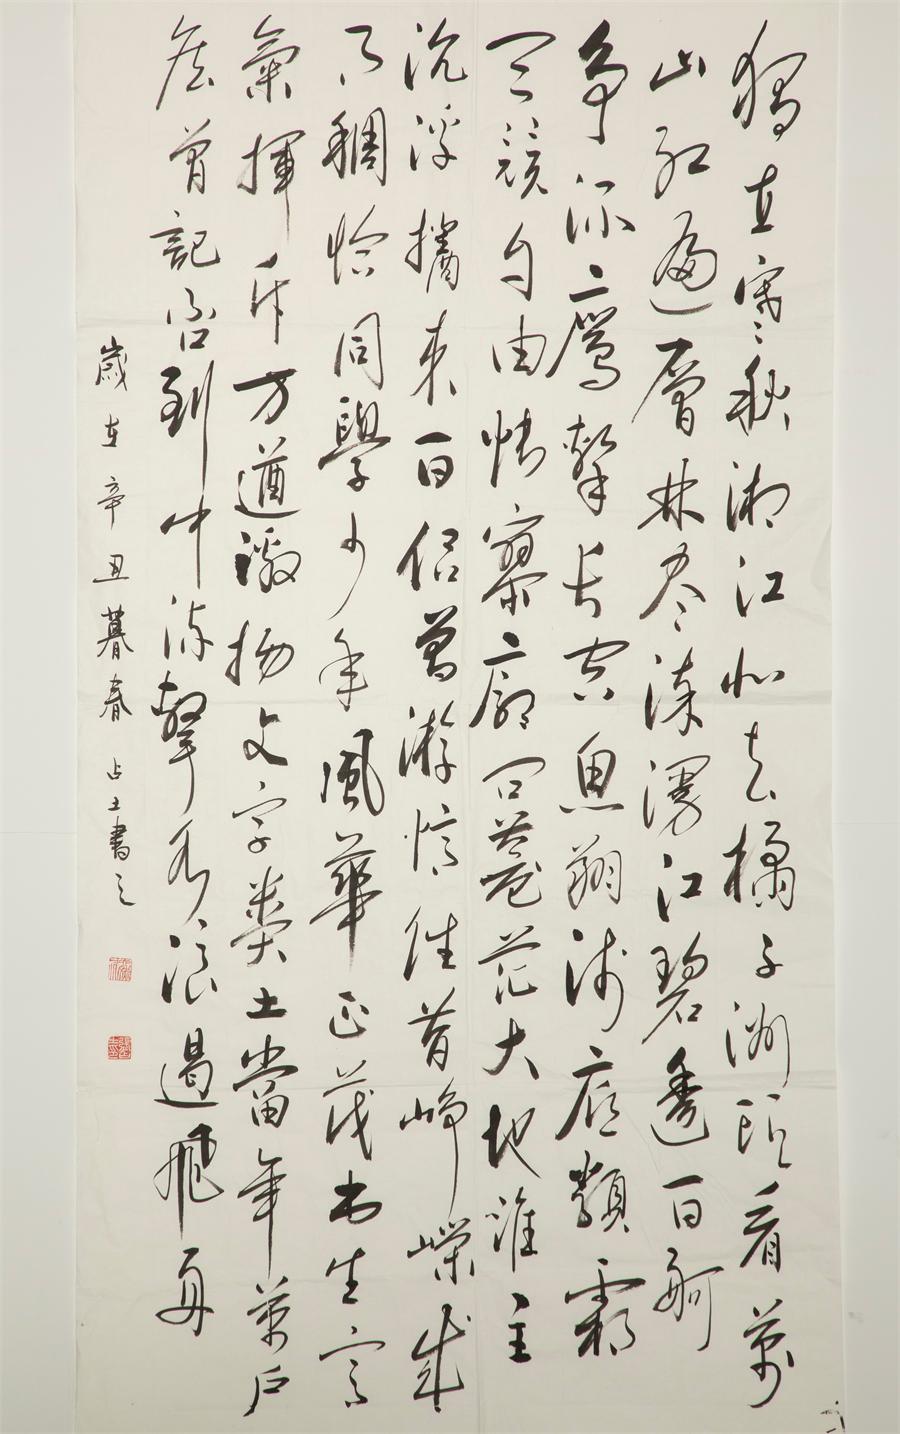 獨立寒秋湘江北去橘子洲頭看萬
山紅遍層林盡染漫江碧透百舸
爭流鷹擊長空魚翔淺底類霜
天競自由悵寥廓問蒼茫大地誰主
沉浮攜來百侶曾游憶往昔崢嶸歲
月稠恰同學少年風華正茂書生意
氣揮斥方遒激揚文字糞土當年萬户
侯曾記否到中流擊水浪遏飛舟
歲在辛丑暮春 占士書之